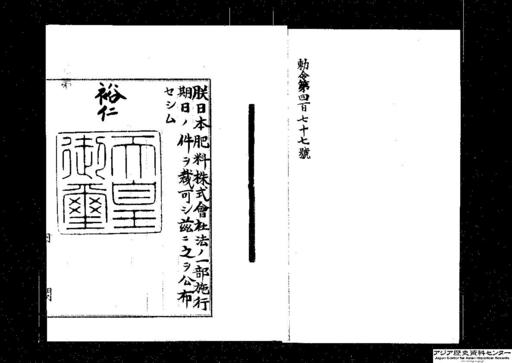 勅令第四百七十七號
朕日本肥料株式會社法ノ一部施行
期日ノ件ヲ裁可シ茲ニ之ヲ公布
セシム
裕仁
天皇
御璽
内
閣
アジア歴史資料センター
Japan Center for Asian Historical Records